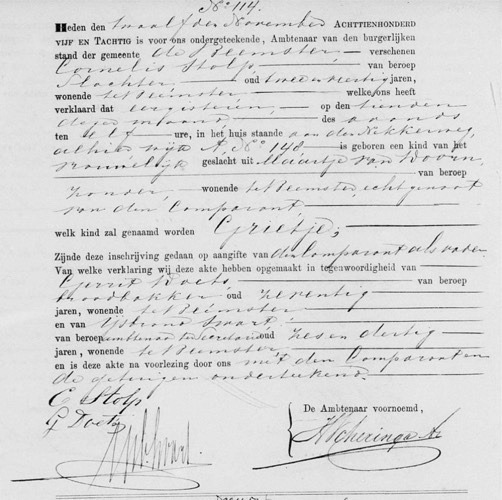 No 114.
Heden den twaalfden November ACHTTIENHONDERD
VIJF EN TACHTIG is voor ons ondergeteekende, Ambtenaar van den burgerlijken
stand der gemeente de Beemster verschenen
Cornelis Stolp, van beroep
Slachter oud twee en veertig jaren,
wonende te Beemster welke ons heeft
verklaard dat eergisteren, op den tienden
dezer maand des avonds
ten elf ure, in het huis staande aan den Nekkerweg,
alhier wijk A, No 148 is geboren een kind van het
vrouwelijk geslacht uit Maartje van Boven,
van beroep
zonder, wonende te Beemster, echtgenoot
van den Comparant
welk kind zal genaamd worden Grietje,
Zijnde deze inschrijving gedaan op aangifte van den Comparant als vader.
Van welke verklaring wij deze akte hebben opgemaakt in tegenwoordigheid van
Gerrit Doets van beroep
broodbakker oud zeventig
jaren, wonende te Beemster
en van IJsbrand Swart
van beroep ambtenaar ter secretarie oud zes en dertig
jaren, wonende te Beemster
en is deze akte na voorlezing door ons met den Comparant en
de getuigen onderteekend.
C Stolp
G Doets
De Ambtenaar voornoemd,